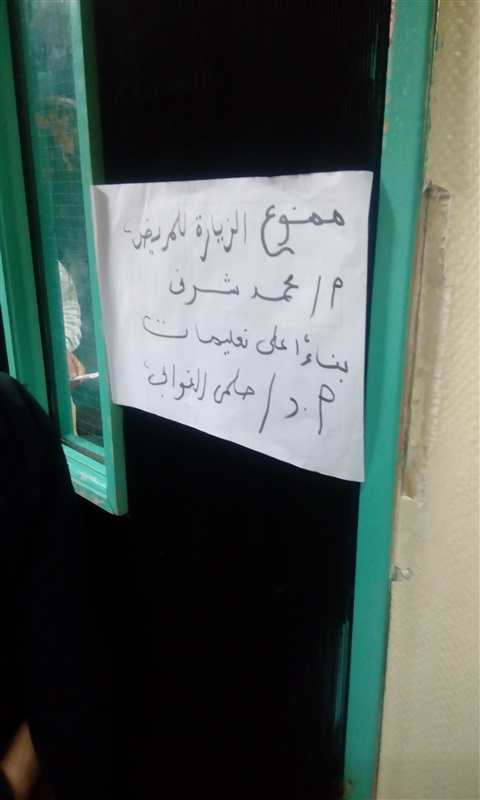 ممنوع الزيارة للمريض
م/ محمد شرفى
بناءً اعلى تعليمات
م.د/ حلمى الغوابى